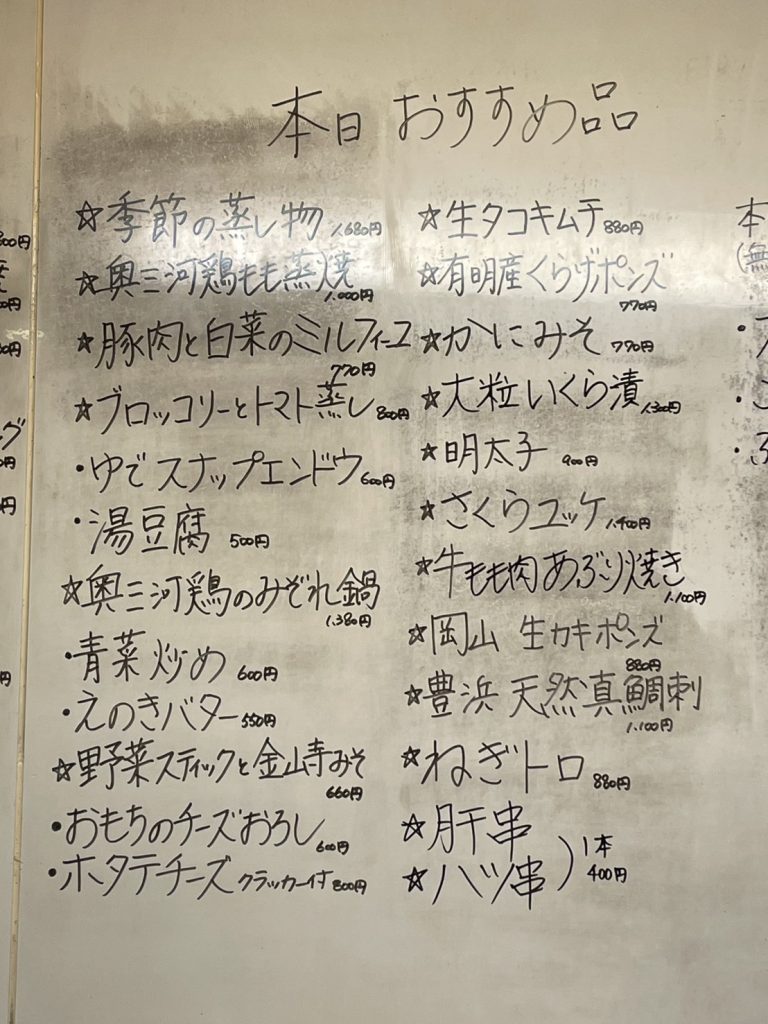 本日 おすすめ品
☆季節の蒸し物 1,680円
☆奥三河鶏もも蒸焼
1,000円
☆豚肉と白菜のミルフィーユ
770円
☆ブロッコリーとトマト蒸し 800円
・ゆでスナップエンドウ 600円
・湯豆腐 500円
☆奥三河鶏のみぞれ鍋
1,380円
・青菜炒め 600円
・えのきバター 550円
☆野菜スティックと金山寺みそ
660円
・おもちのチーズおろし 600円
・ホタテチーズ クラッカー付 800円
☆生タコキムチ 880円
☆有明産くらげポンズ
770円
☆かにみそ 770円
☆大粒いくら漬 1,300円
☆明太子 900円
☆さくらユッケ 1,400円
☆牛もも肉あぶり焼き
1,100円
☆岡山 生カキポンズ
880円
☆豊浜 天然真鯛刺
1,100円
☆ねぎトロ 880円
☆肝串
☆ハツ串
) 1本
400円
800円
円
円
グ
円
円
円
本
(無
・
・
・ふ